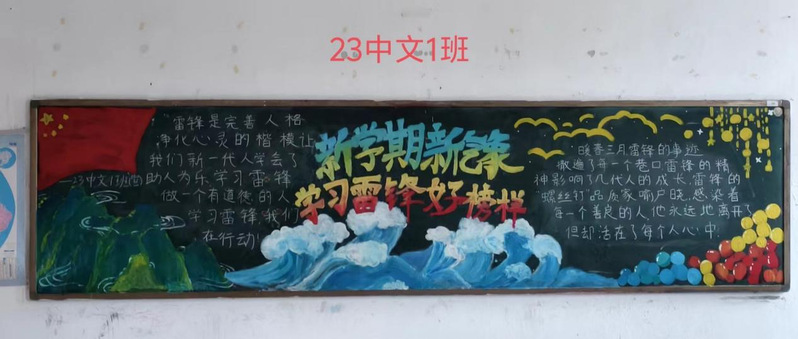 23中文1班
"雷锋是完善人格
净化心灵的楷模让
我们新一代人学会了
助人为乐.学习雷锋
做一个有道德的人
学习雷锋我们
在行动!
新学期新气象
学习雷锋好榜样
暖春三月雷锋的事迹
撒遍了每一个巷口雷锋的精
神影响了几代人的成长.雷锋的
"螺丝钉"品质家喻户晓.感染着
每一个善良的人他永远地离开了
但却活在了每个人心中.